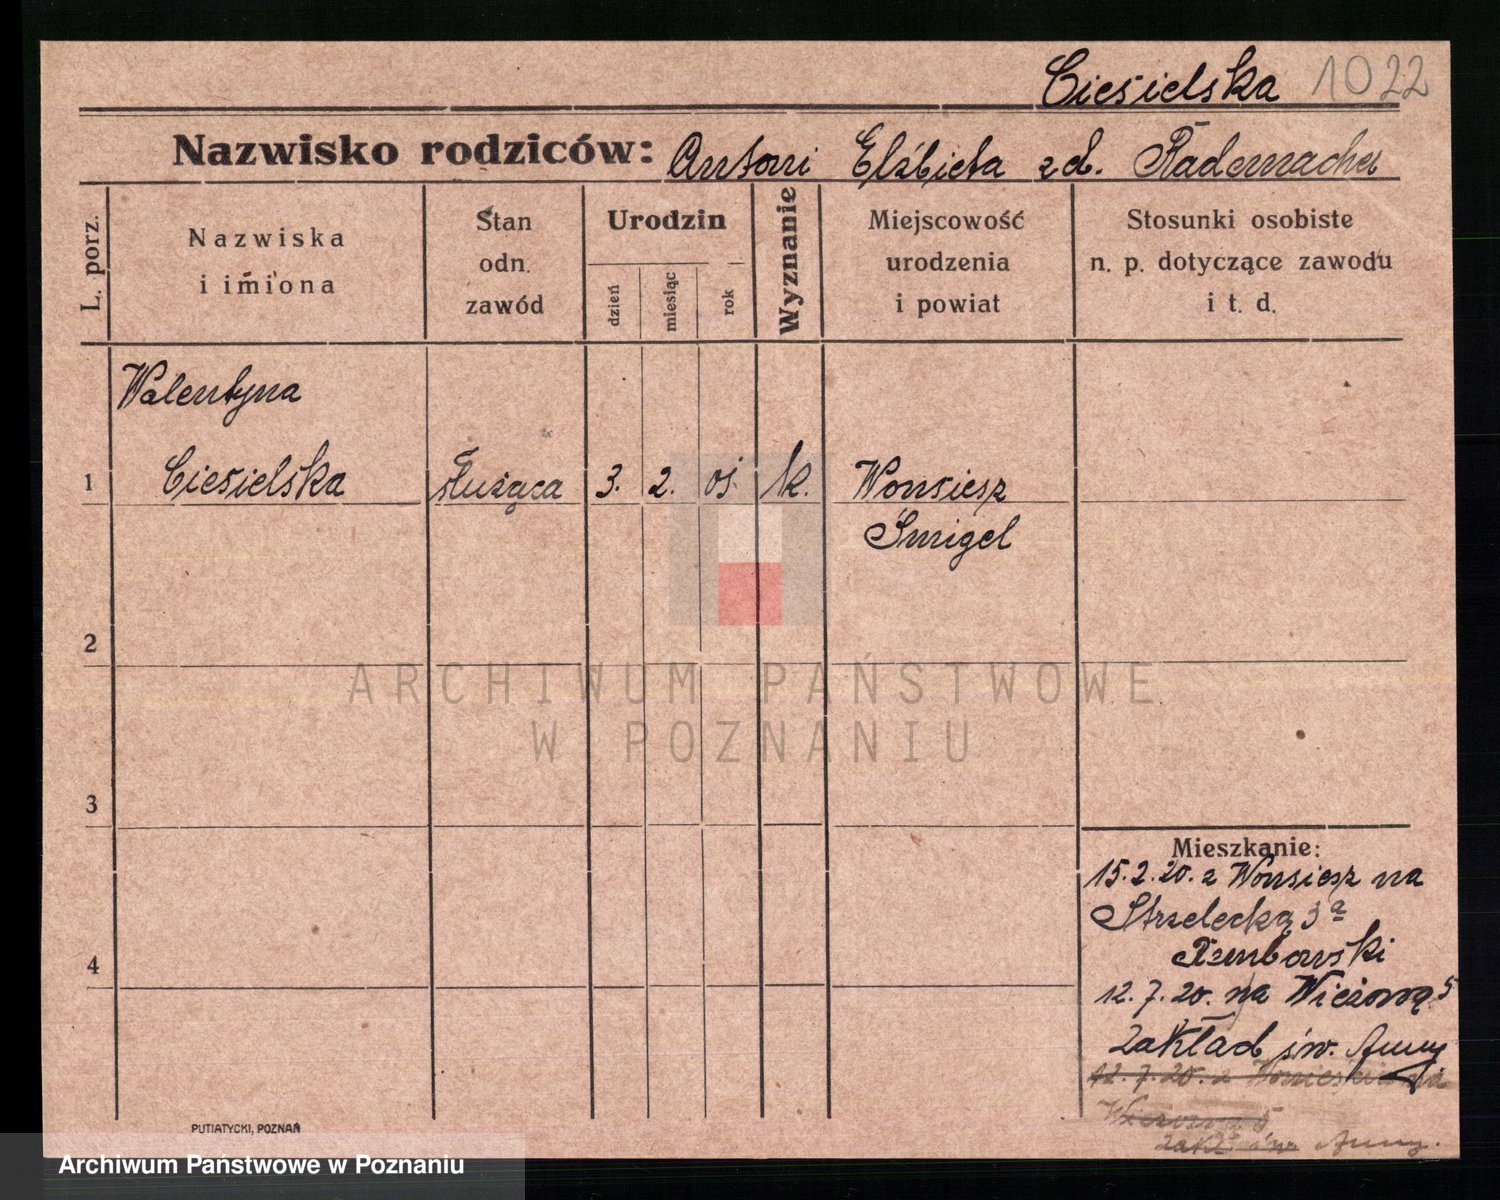 Ciesielska 1022
Nazwisko rodziców: Antoni Elżbieta zd. Rademacher
L. porz.
Nazwiska
i imiona
Stan
odn.
zawód
Urodzin
dzień
miesiąc
rok
Wyznanie
Miejscowość
urodzenia
i powiat
Stosunki osobiste
n. p. dotyczące zawodu
i t. d.
Walentyna
1 Ciesielska służąca 3. 2. 05. k. Wonsiesz
Śmigel
2
ARCHIWUM PAŃSTWOWE
W POZNANIU
3
Mieszkanie:
15.2.20. z Wonsiesz na
Strzelecką 3a
Rembowski
4
12.7.20. na Wieżową 5
zakład św. Anny
12.7.20. z na
5
zakł św. Anny.
PUTIATYCKI, POZNAŃ
Archiwum Państwowe w Poznaniu